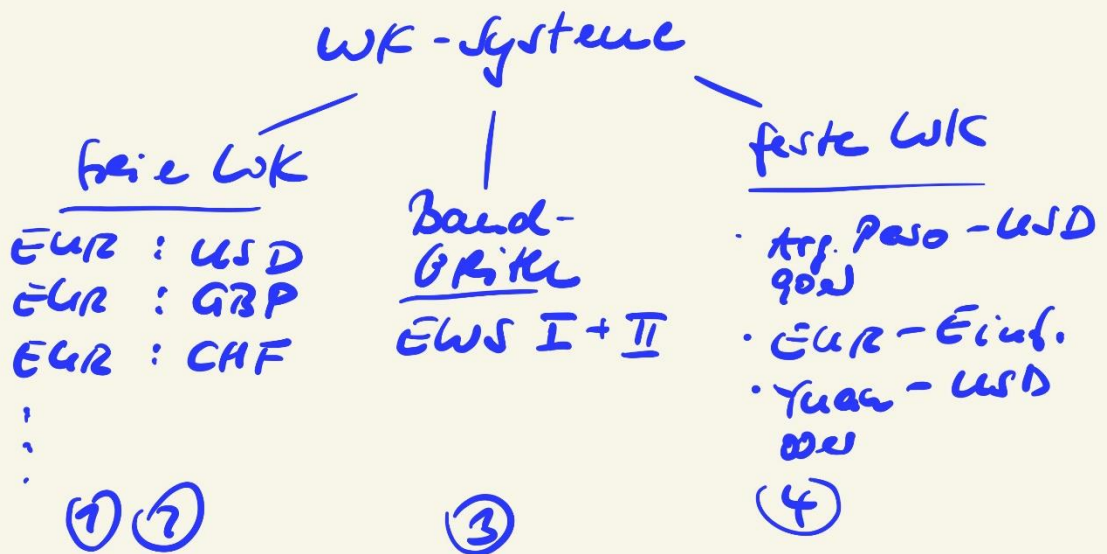 WK-Systeme
freie WK
EUR : USD
EUR : GBP
EUR : CHF
:
.
① ②
Band-
breiten
EWS I + II
③
feste WK
· Arg. Peso - USD
90er
· EUR - Einf.
· Yuan - USD
00er
④